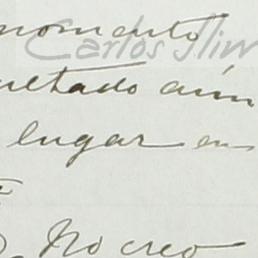 momento
Carlos Slim
ultado aún
lugar en
No creo